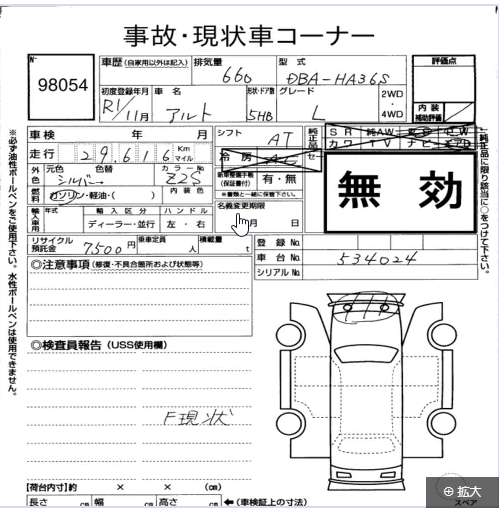 事故・現状車コーナー
No
98054
車歴(自家用以外は記入) 排気量 型式 評価点
660 DBA-HA36S
初度登録年月 車名 形状・ドア数 グレード 2WD
R1/11月 アルト 5HB L ・
4WD
内装
補助評価
車検 年 月 シフト AT 純正品 SR 純AW
走行 29,616 Km カワ TV ナビ
マイル 冷房 AC
外色 元色 色替 カラーNo 新車整備手帳 有・無
シルバー Z2S (保証書付)
燃料 ガソリン・軽油・( ) 内装色 ※書類と一緒に保管下さい。
無効
輸入車用 年式 輸入区分 ハンドル 名義変更期限
ディーラー・並行 左・右 月 日
リサイクル 7500円 乗車定員 積載量 登録No.
預託金 人 t 車台No. 534024
シリアルNo.
◎注意事項(修復・不具合箇所および状態等)
◎検査員報告(USS使用欄)
F現状
【荷台内寸】約 × × (cm)
長さ cm 幅 cm 高さ cm ←(車検証上の寸法)
※必ず油性ボールペンをご使用下さい。水性ボールペンは使用できません。
純正品に限り該当に○をつけて下さい。
スペア
拡大